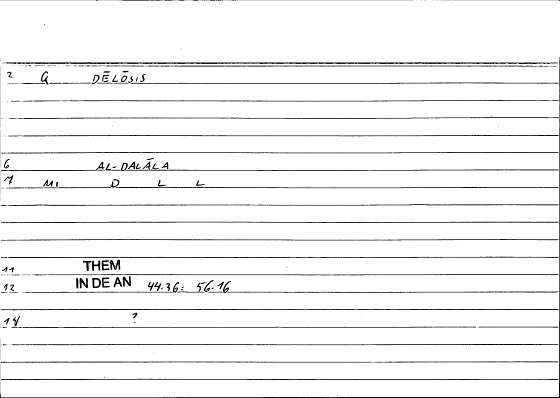 2 G DĒLŌSIS
6 AL-DALĀLA
7 M1 D L L
11 THEM
12 IN DE AN 44.36: 56.16
14 ?